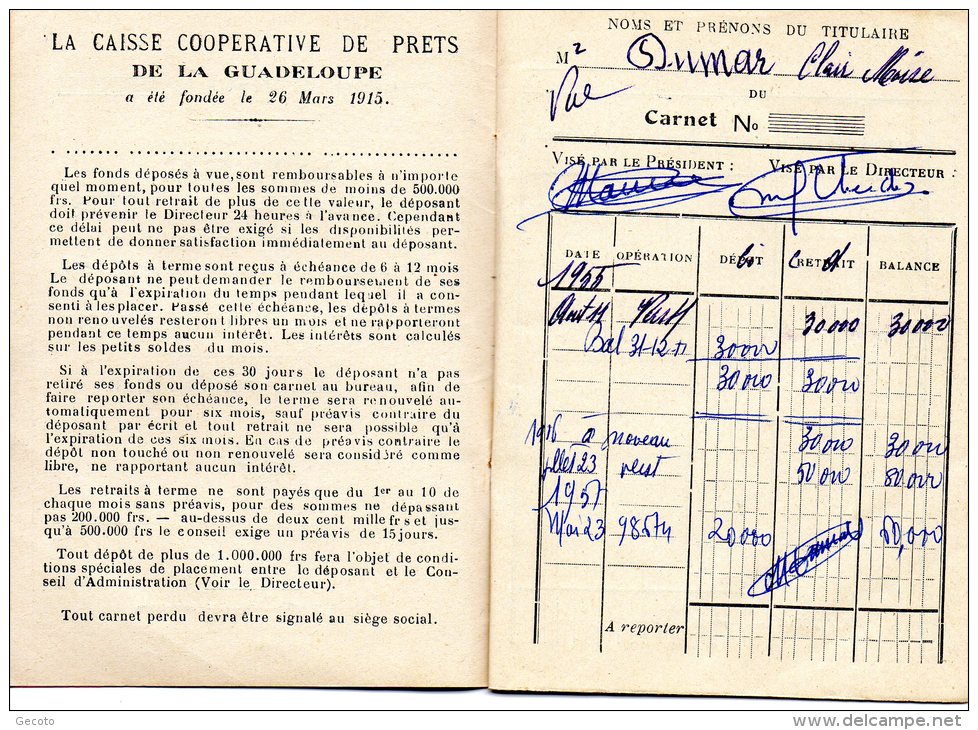 LA CAISSE COOPERATIVE DE PRETS
DE LA GUADELOUPE
a été fondée le 26 Mars 1915.
Les fonds déposés à vue, sont remboursables à n'importe
quel moment, pour toutes les sommes de moins de 500.000
frs. Pour tout retrait de plus de cette valeur, le déposant
doit prévenir le Directeur 24 heures à l'avance. Cependant
ce délai peut ne pas être exigé si les disponibilités per-
mettent de donner satisfaction immédiatement au déposant.
Les dépôts à terme sont reçus à échéance de 6 à 12 mois
Le déposant ne peut demander le remboursement de ses
fonds qu'à l'expiration du temps pendant lequel il a con-
senti à les placer. Passé cette échéance, les dépôts à termes
non renouvelés resteront libres un mois et ne rapporteront
pendant ce temps aucun intérêt. Les intérêts sont calculés
sur les petits soldes du mois.
Si à l'expiration de ces 30 jours le déposant n'a pas
retiré ses fonds ou déposé son carnet au bureau, afin de
faire reporter son échéance, le terme sera renouvelé au-
tomatiquement pour six mois, sauf préavis contraire du
déposant par écrit et tout retrait ne sera possible qu'à
l'expiration de ces six mois. En cas de préavis contraire le
dépôt non touché ou non renouvelé sera considéré comme
libre, ne rapportant aucun intérêt.
Les retraits à terme ne sont payés que du 1er au 10 de
chaque mois sans préavis, pour des sommes ne dépassant
pas 200.000 frs. — au-dessus de deux cent mille frs et jus-
qu'à 500.000 frs le conseil exige un préavis de 15 jours.
Tout dépôt de plus de 1.000.000 frs fera l'objet de condi-
tions spéciales de placement entre le déposant et le Con-
seil d'Administration (Voir le Directeur).
Tout carnet perdu devra être signalé au siège social.
NOMS ET PRÉNONS DU TITULAIRE
Mr Dumar Clair Moïse
Vue
DU
Carnet No
VISÉ PAR LE PRÉSIDENT : VISÉ PAR LE DIRECTEUR :
DATE OPÉRATION DÉPÔT RETRAIT BALANCE
1955
Août 30000 30000
Bal 31-12 30000
30000 30000
1956 à nouveau 30000 30000
23 50000 80000
1957
Mai 23 20000 60,000
A reporter
Gecoto
delcampe.net